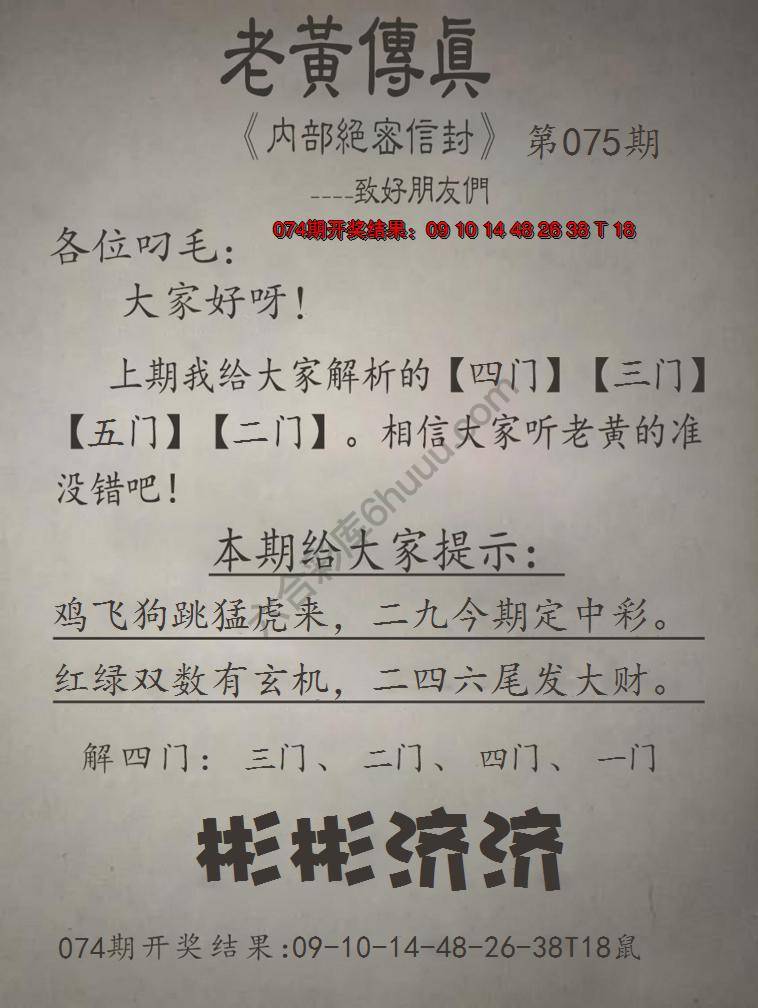 老黃傳眞
《内部絕密信封》 第075期
----致好朋友們
074期开奖结果：09 10 14 48 26 38 T 18
各位叼毛：
大家好呀！
上期我给大家解析的【四门】【三门】
【五门】【二门】。相信大家听老黄的准
没错吧！
本期给大家提示：
鸡飞狗跳猛虎来，二九今期定中彩。
红绿双数有玄机，二四六尾发大财。
解四门：三门、二门、四门、一门
彬彬济济
074期开奖结果:09-10-14-48-26-38T18鼠
六合彩库6huuu.com